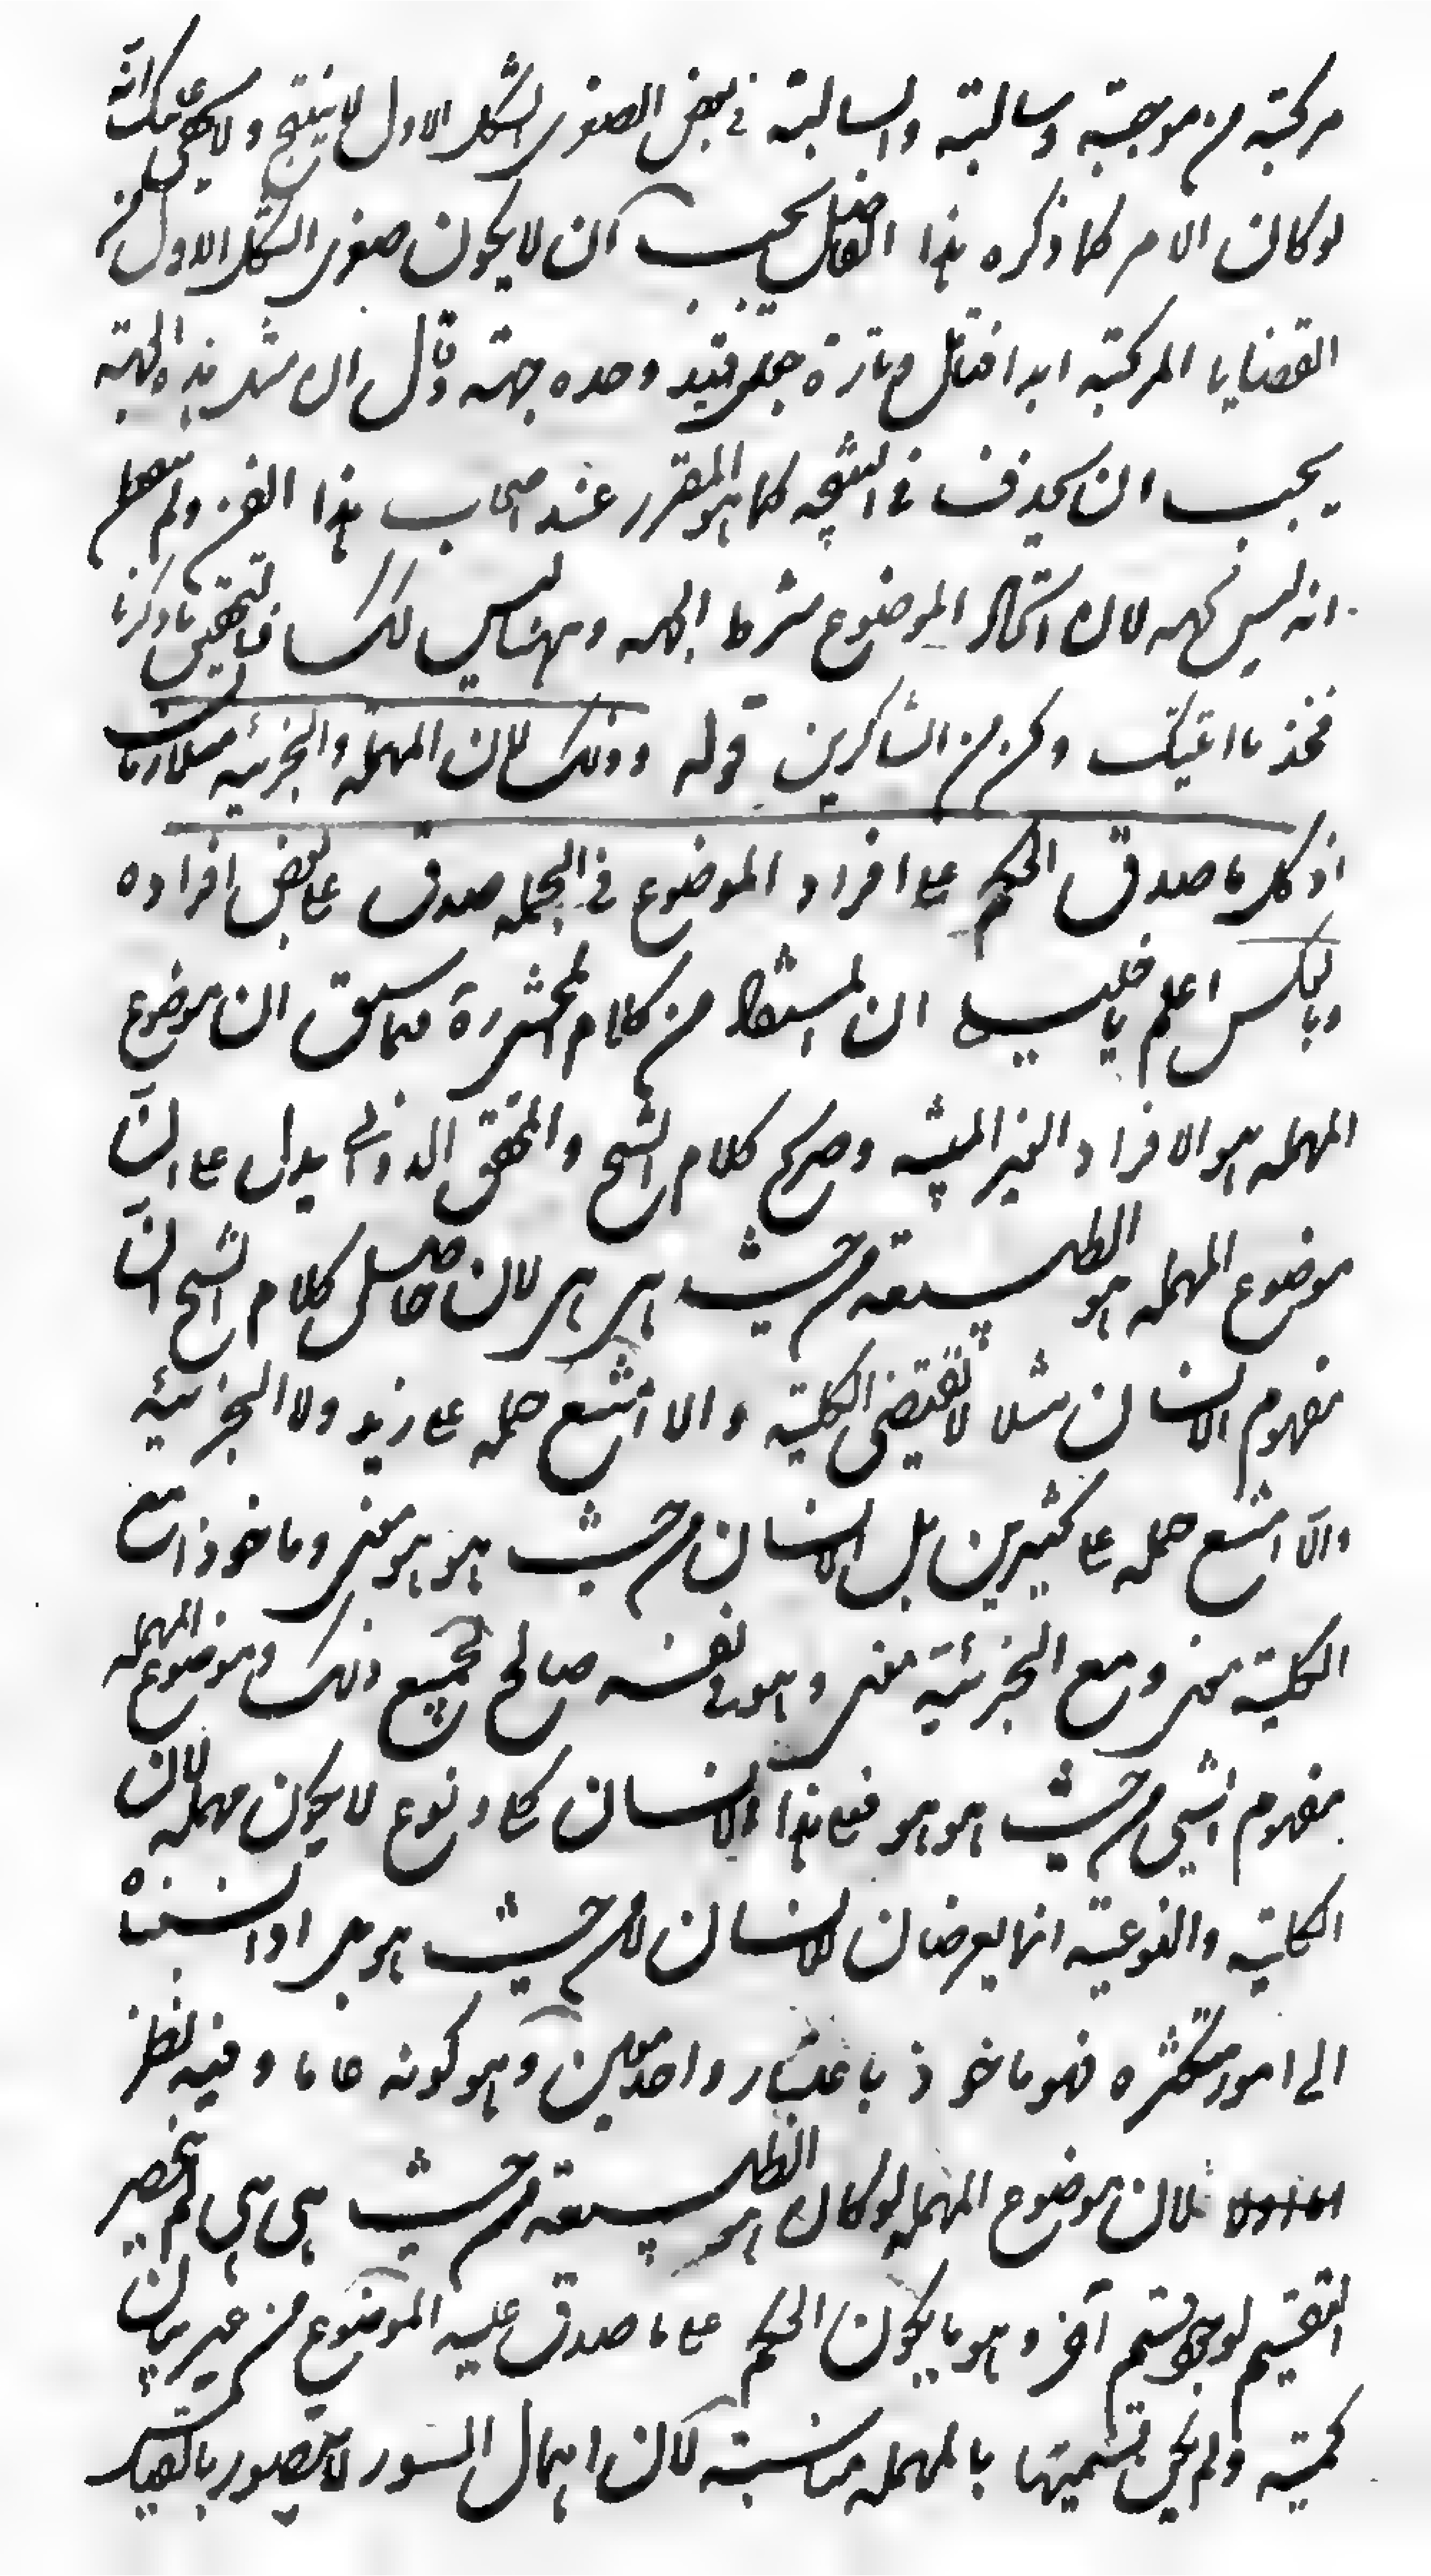 مركبته من موجبته وسالبته والسالبته في بعض الصغرى الشكل الاول لا ينتج ولا يخفى عليك انه
لو كان الامر كما ذكره هذا الفاضل يجب ان لا يكون صغرى الشكل الاول من
القضايا المركبته ابدا فتامل وتارة جعل قيد وحده جهته وقال ان مثل هذه الجهته
يجب ان يحذف في النتيجه كما هو المقرر عند اصحاب هذا الفن ولم يعلم
انه ليس بجهه لان الموضوع شرط الجهه وههنا ليس كذلك فالتحقيق ما ذكرنا
فخذ ما اتيتك وكن من الشاكرين قوله وذلك لان المهمله والجزئيه متلازمتان
اذ كل ما صدق الحكم على افراد الموضوع في الجمله صدق على بعض افراده
وبالعكس اعلم يا خليلي ان المستفاد من كلام فيما سبق ان موضوع
المهمله هو الافراد الغير المبينه وصريح كلام الشيخ والمحقق الدواني يدل على ان
موضوع المهمله هو الطبيعته من حيث هى هى لان حاصل كلام الشيخ ان
مفهوم الانسان مثلا لا تقتضى الكليته والا امتنع حمله على زيد ولا الجزئيه
والا امتنع حمله على كثيرين بل الانسان من حيث هو هو معنى وماخوذا مع
الكليته معنى ومع الجزئيته معنى وهو في نفسه صالح لجميع ذلك وموضوع المهمله
مفهوم الشيى من حيث هو هو فعلى هذا الانسان كلى و نوع لا يكون مهمله لان
الكليته والنوعيته انما يعرضان للانسان لا من حيث هو هو بل اذا نسبناه
الى امور متكثره فهو ماخوذ باعتبار واحد معين وهو كونه عاما وفيه نظر
لان موضوع المهمله لو كان هو الطبيعته من حيث هى هى لم ينحصر
التقسيم لوجود قسم آخر وهو ما يكون الحكم على ما صدق عليه الموضوع من غير بيان
كميته ولم يكن تسميتها بالمهمله مناسبته لان اهمال السور لا يتصور بالقياس